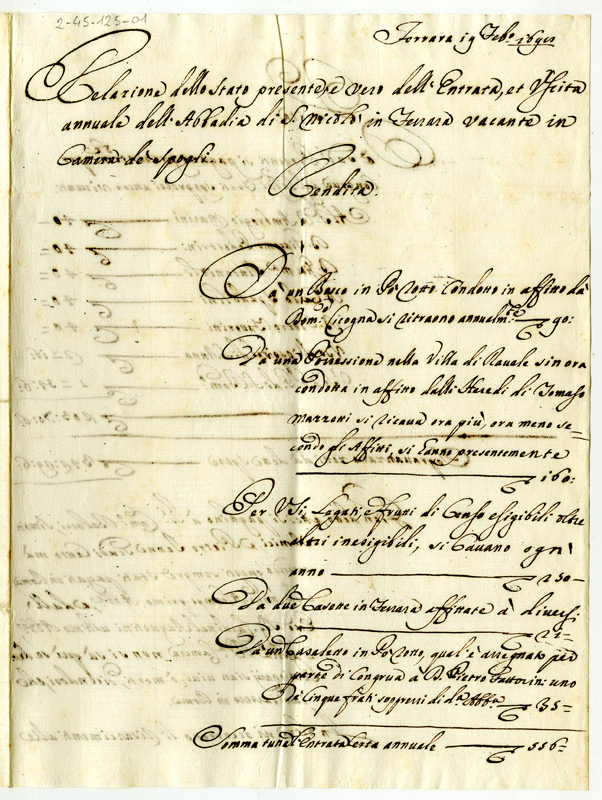 2-45-125-01
Ferrara 19 Feb.º 1692
Relazione dello stato presente, e vero dell'Entrata, et Uscita
annuale dell'Abbadia di S. Nicolò in Ferrara vacante in
Camera de Spogli.
Rendita.
Dà un Bosco in Pò rotto condotto in affitto dà
Dom.co Cicogna si ritraono annualm.te 90:
Dà una Possessione nella Villa di Ravale sin ora
condotta in affitto dalli Heredi di Tomaso
Mazzotti si ricava ora più, ora meno se=
condo gli Affitti, si hanno presentemente
160:
Per Usi, Legati, e frutti di Censo esigibili oltre
altri inesigibili, si Cavano ogn'
anno 250=
Dà due Casette in Ferrara affittate à diversi
21=
Dà un Casaletto in Pò rotto, qual'è assegnato per
parte di Congrua à D. Pietro Fattorini uno
de Cinque frati soppressi di d.ª Abb.ª 35=
Somma tutta l'Entrata certa annuale 556=